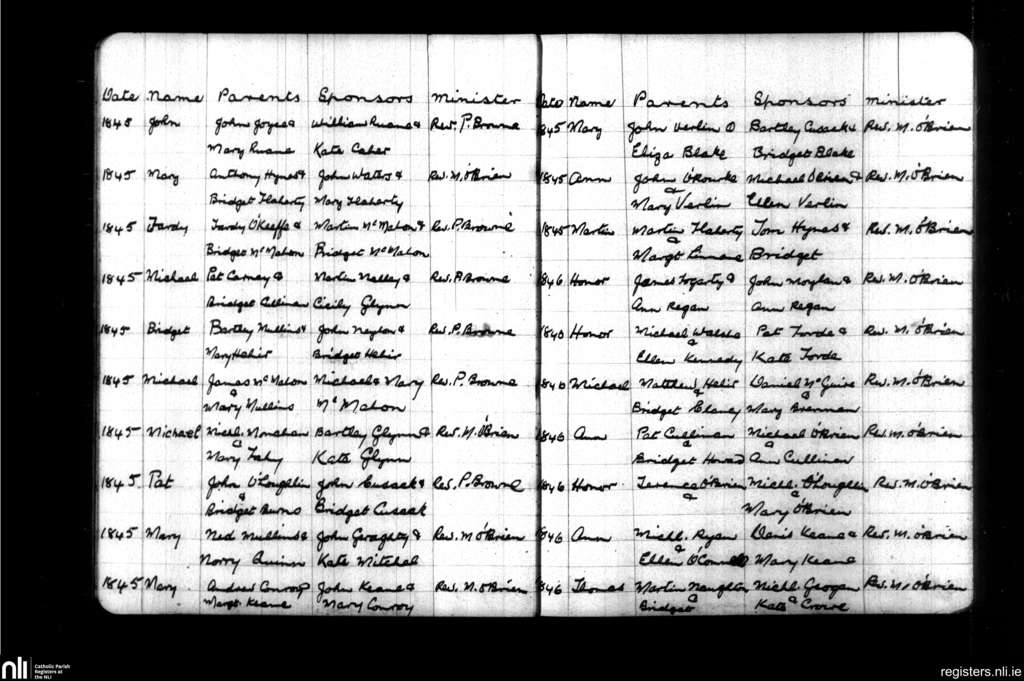 Date Name Parents Sponsors Minister
1845 John John Joyce & William Ruane & Rev. P. Browne
Mary Ruane Kate Caher
1845 Mary Anthony Hynes & John Waters & Rev. M. O'Brien
Bridget Flaherty Mary Flaherty
1845 Fardy Fardy O'Keeffe & Martin McMahon & Rev. P. Browne
Bridget McMahon Bridget McMahon
1845 Michael Pat Carney & Martin Malley & Rev. P. Browne
Bridget Cullinan Cicily Glynn
1845 Bridget Bartley Mullins & John Neylon & Rev. P. Browne
Mary Hehir Bridget Hehir
1845 Michael James McMahon Michael & Mary Rev. P. Browne
& Mary Mullins McMahon
1845 Michael Michl. Monahan Bartley Glynn & Rev. M. O'Brien
& Mary Fahy Kate Glynn
1845 Pat John O'Loughlin John Cusack & Rev. P. Browne
& Bridget Burns Bridget Cusack
1845 Mary Ned Mullins & John Geraghty & Rev. M. O'Brien
Norry Quinn Kate Mitchel
1845 Mary Andrew Conroy John Keane & Rev. M. O'Brien
Margt. Keane Mary Conroy
Date Name Parents Sponsors Minister
1845 Mary John Verlin & Bartley Cusack & Rev. M. O'Brien
Eliza Blake Bridget Blake
1845 Ann John O'Rourke Michael & Rev. M. O'Brien
& Mary Verlin Ellen Verlin
1845 Martin Martin Flaherty Tom Hynes & Rev. M. O'Brien
& Margt Linnane Bridget
1846 Honor James Fogarty & John Moylan & Rev. M. O'Brien
Ann Regan Ann Regan
1846 Honor Michael Walshe Pat Forde & Rev. M. O'Brien
& Ellen Kennedy Kate Forde
1846 Michael Matthew Hehir Daniel McGuire Rev. M. O'Brien
& Bridget Clancy & Mary Brennan
1846 Ann Pat Cullinan Michael O'Brien Rev. M. O'Brien
& Bridget Howard & Ann Cullinan
1846 Honor Terence O'Brien Michl. O'Loughlin Rev. M. O'Brien
& & Mary O'Brien
1846 Ann Michl. Ryan Denis Keane & Rev. M. O'Brien
& Ellen O'Connell Mary Keane
1846 Thomas Martin Naughton Michl Geogan Rev. M. O'Brien
& Bridget & Kate Crowe
nli Catholic Parish
Registers at
the NLI
registers.nli.ie